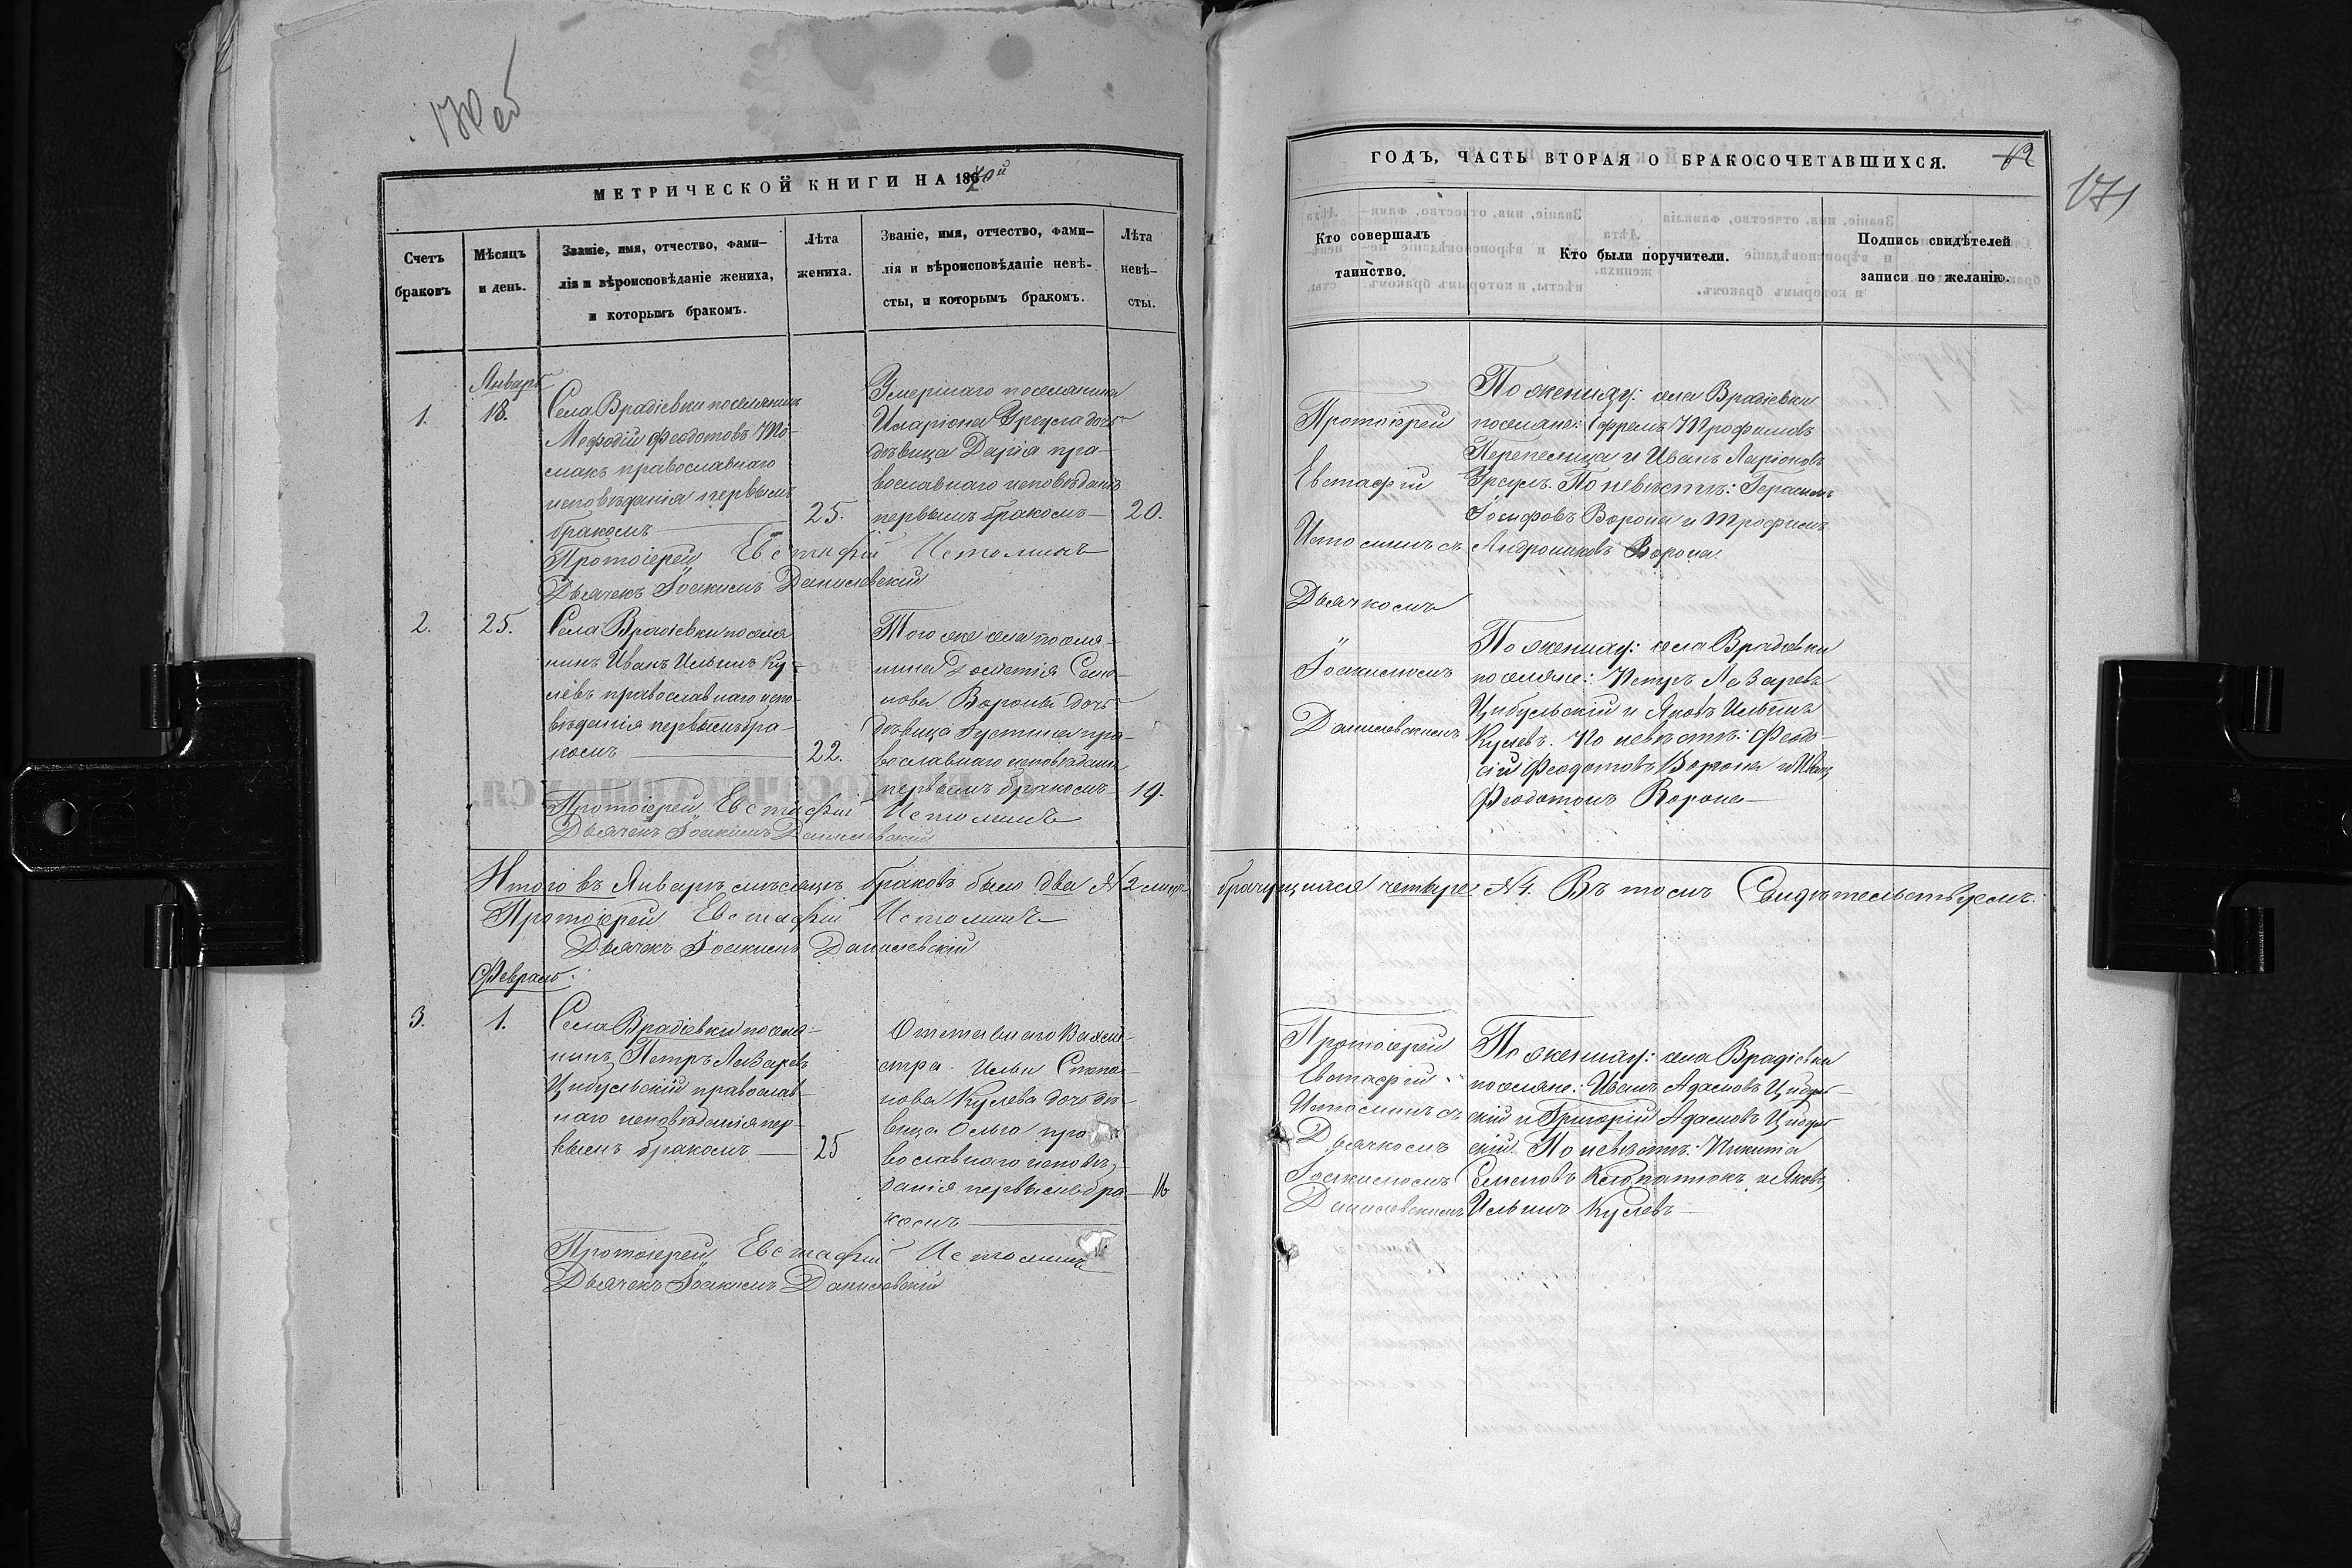 170 об
МЕТРИЧЕСКОЙ КНИГИ НА 1870й
Счетъ браковъ
Мѣсяцъ и день.
Званіе, имя, отчество, фами-
лія и вѣроисповѣданіе жениха,
и которымъ бракомъ.
Лѣта
жениха.
Званіе, имя, отчество, фами-
лія и вѣроисповѣданіе невѣ-
сты, и которымъ бракомъ.
Лѣта
невѣ-
сты.
Январь
1.
18.
Села Врадіевки поселянинъ
Мефодій Феодотовъ
православнаго
исповѣданія первымъ
бракомъ
25.
Умершаго поселянина
Иларіона Урсула дочь
дѣвица Дарія пра-
вославнаго исповѣданія
первымъ бракомъ
20.
Протоіерей Евстафій Истоминъ
Дьячекъ Іоакимъ Данилевскій
2.
25.
Села Врадіевки поселя
нинъ Иванъ Ильинъ Ку-
левъ православнаго испо-
вѣданія первымъ бра-
комъ
22.
Того же села поселя-
нина Семе-
нова Вороны дочь
дѣвица Іустина пра-
вославнаго исповѣданія
первымъ бракомъ
19.
Протоіерей Евстафій Истоминъ
Дьячекъ Іоакимъ Данилевскій
Итого въ Январѣ мѣсяцѣ браковъ было два № 2 лицъ
Протоіерей Евстафій Истоминъ
Дьячекъ Іоакимъ Данилевскій
Февраль.
3.
1.
Села Врадіевки поселя-
нинъ Петръ Лазаревъ
Цибульскій православ-
наго исповѣданія пер-
вымъ бракомъ
25
Отставнаго Вахми-
стра Ильи Степа-
нова Кулева дочь дѣ-
вица Ольга пра
вославнаго исповѣ-
данія первымъ бра-
комъ
16
Протоіерей Евстафій Истоминъ
Дьячекъ Іоакимъ Данилевскій
ГОДЪ, ЧАСТЬ ВТОРАЯ О БРАКОСОЧЕТАВШИХСЯ.
62
171
Кто совершалъ
таинство.
Кто были поручители.
Подпись свидѣтелей
записи по желанію.
Протоіерей
Евстафій
Истоминъ съ
Дьячкомъ
Іоакимомъ
Данилевскимъ
По жениху: села Врадіевки
поселяне: Ефремъ Трофимовъ
Перепелица и Иванъ Ларіоновъ
Урсулъ. По невѣстѣ: Герасимъ
Іосифовъ Ворона и Трофимъ
Андрониковъ Ворона.
По жениху: села Врадіевки
поселяне: Петръ Лазаревъ
Цибульскій и Яковъ Ильинъ
Кулевъ. По невѣстѣ: Феодо-
сій Феодотовъ Ворона и Иванъ
Феодотовъ Ворона
брачущихся четыре № 4. Въ томъ Свидѣтельствуемъ.
Протоіерей
Евстафій
Истоминъ съ
Дьячкомъ
Іоакимомъ
Данилевскимъ
По жениху: села Врадіевки
поселяне: Иванъ Адамовъ Цибуль-
скій и Григорій Адамовъ Цибуль-
скій. По невѣстѣ: Никита
Семеновъ и Яковъ
Ильинъ Кулевъ